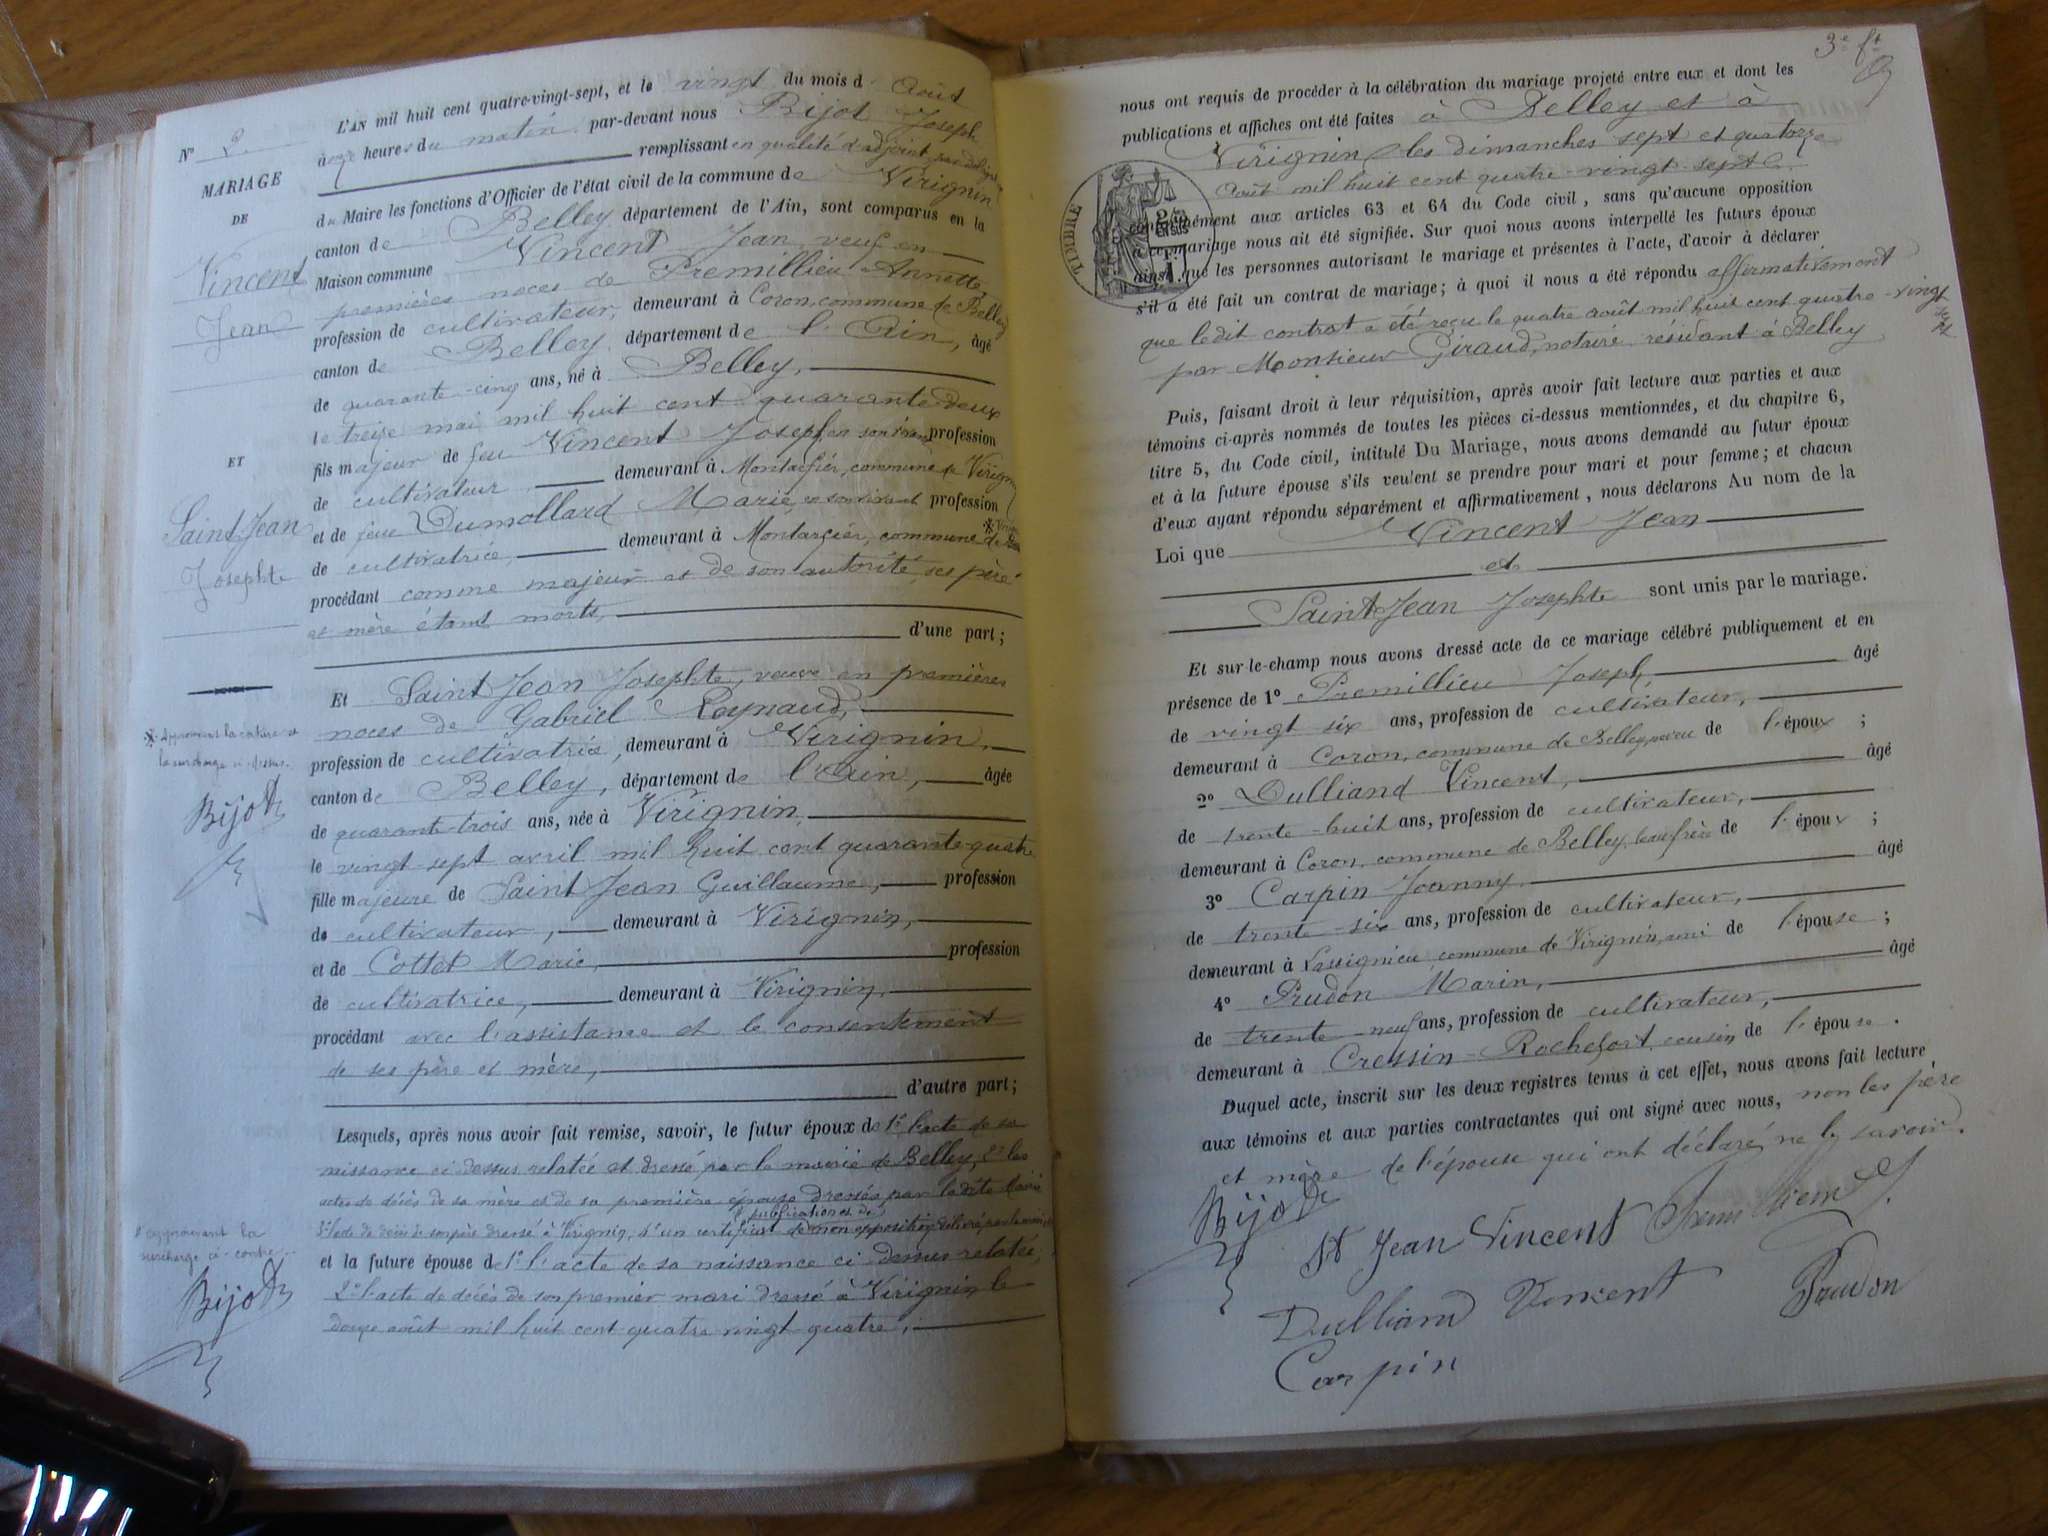 N° 8
MARIAGE
DE
Vincent
Jean
ET
Saint Jean
Josephte
L'AN mil huit cent quatre-vingt-sept, et le vingt du mois d'Août
à onze heures du matin par-devant nous Bijot Joseph
remplissant en qualité d'adjoint par
du Maire les fonctions d'Officier de l'état civil de la commune de Virignin
canton de Belley, département de l'Ain, sont comparus en la
Maison commune Vincent Jean, veuf en
premières noces de Premillieu Annette,
profession de cultivateur, demeurant à Coron, commune de Belley
canton de Belley, département de l'Ain, âgé
de quarante-cinq ans, né à Belley,
le treize mai mil huit cent quarante-deux
fils majeur de feu Vincent Joseph, en son vivant profession
de cultivateur demeurant à Montarfier, commune de Virignin
et de feue Dumollard Marie, en son vivant profession
de cultivatrice, demeurant à Montarfier, commune de
procédant comme majeur et de son autorité, ses père
et mère étant morts,
d'une part;
Et Saint Jean Josephte, veuve en premières
noces de Gabriel Reynaud,
profession de cultivatrice, demeurant à Virignin,
canton de Belley, département de l'Ain, âgée
de quarante-trois ans, née à Virignin,
le vingt sept avril mil huit cent quarante-quatre
fille majeure de Saint Jean Guillaume, profession
de cultivateur, demeurant à Virignin,
et de Cottet Marie, profession
de cultivatrice, demeurant à Virignin,
procédant avec l'assistance et le consentement
de ses père et mère,
d'autre part;
Lesquels, après nous avoir fait remise, savoir, le futur époux de 1° l'acte de sa
naissance ci dessus relatée et dressé par la mairie de Belley, 2° les
actes de décès de sa mère et de sa première épouse dressés par ladite Mairie
publications et de
3° l'acte de décès de son père dressé à Virignin, d'un certificat de non opposition délivré par la
et la future épouse de 1° l'acte de sa naissance ci dessus relatée,
2° l'acte de décès de son premier mari dressé à Virignin le
douze août mil huit cent quatre vingt quatre,
Approuvant la rature et
la surcharge ci-dessus.
Bijot
approuvant la
surcharge ci-contre.
Bijot
3e ft
nous ont requis de procéder à la célébration du mariage projeté entre eux et dont les
publications et affiches ont été faites à Belley et à
Virignin les dimanches sept et quatorze
Août mil huit cent quatre-vingt-sept
TIMBRE
conformément aux articles 63 et 64 du Code civil, sans qu'aucune opposition
à ce mariage nous ait été signifiée. Sur quoi nous avons interpellé les futurs époux
ainsi que les personnes autorisant le mariage et présentes à l'acte, d'avoir à déclarer
s'il a été fait un contrat de mariage; à quoi il nous a été répondu affirmativement
que ledit contrat a été reçu le quatre août mil huit cent quatre-vingt
sept
par Monsieur Giraud, notaire résidant à Belley
Puis, faisant droit à leur réquisition, après avoir fait lecture aux parties et aux
témoins ci-après nommés de toutes les pièces ci-dessus mentionnées, et du chapitre 6,
titre 5, du Code civil, intitulé Du Mariage, nous avons demandé au futur époux
et à la future épouse s'ils veulent se prendre pour mari et pour femme; et chacun
d'eux ayant répondu séparément et affirmativement, nous déclarons Au nom de la
Loi que Vincent Jean
et
Saint Jean Josephte sont unis par le mariage.
Et sur-le-champ nous avons dressé acte de ce mariage célébré publiquement et en
présence de 1° Premillieu Joseph, âgé
de vingt six ans, profession de cultivateur,
demeurant à Coron, commune de Belley, neveu de l'époux;
2° Dulliand Vincent, âgé
de trente-huit ans, profession de cultivateur,
demeurant à Coron, commune de Belley, beau-frère de l'époux;
3° Carpin Joanny, âgé
de trente-six ans, profession de cultivateur,
demeurant à Lassignieu commune de Virignin, ami de l'épouse;
4° Prudon Marin, âgé
de trente-neuf ans, profession de cultivateur,
demeurant à Cressin-Rochefort, cousin de l'épouse.
Duquel acte, inscrit sur les deux registres tenus à cet effet, nous avons fait lecture
aux témoins et aux parties contractantes qui ont signé avec nous, non les père
et mère de l'épouse qui ont déclaré ne le savoir.
Bijot
St Jean Vincent
Dulliand Vincent Prudon
Carpin